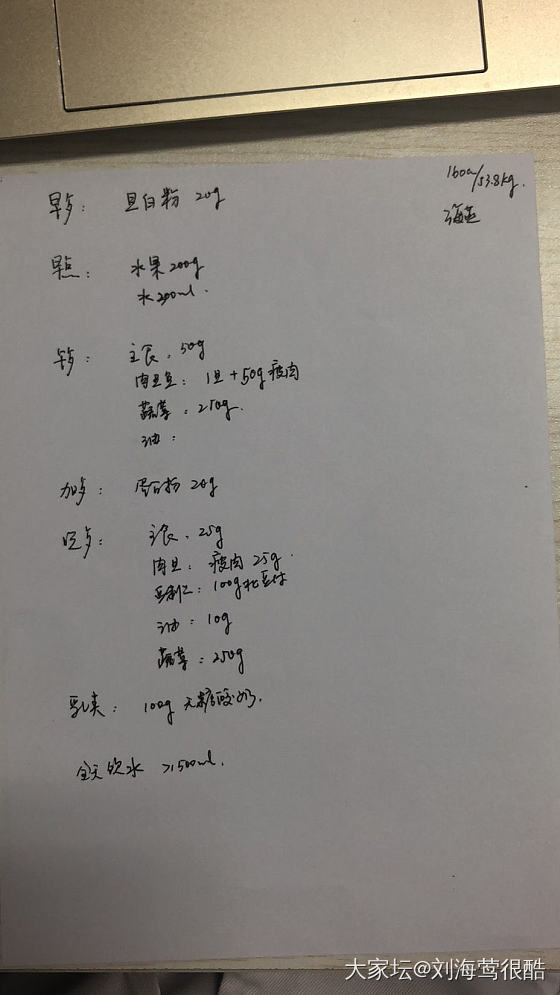 160cm/53.8kg.
早歺: 旦白粉 20g
早点: 水果 200g
水 200ml.
午歺: 主食. 50g
肉旦鱼: 1旦 + 50g 瘦肉
蔬菜: 250g.
油:
加歺: 蛋白粉 20g
晚歺: 主食. 25g
肉旦: 瘦肉 25g.
100g北豆付
油: 10g
蔬菜: 250g
乳类: 100g 无糖酸奶.
全天饮水 >1500ml.
大家坛@刘海莺很酷